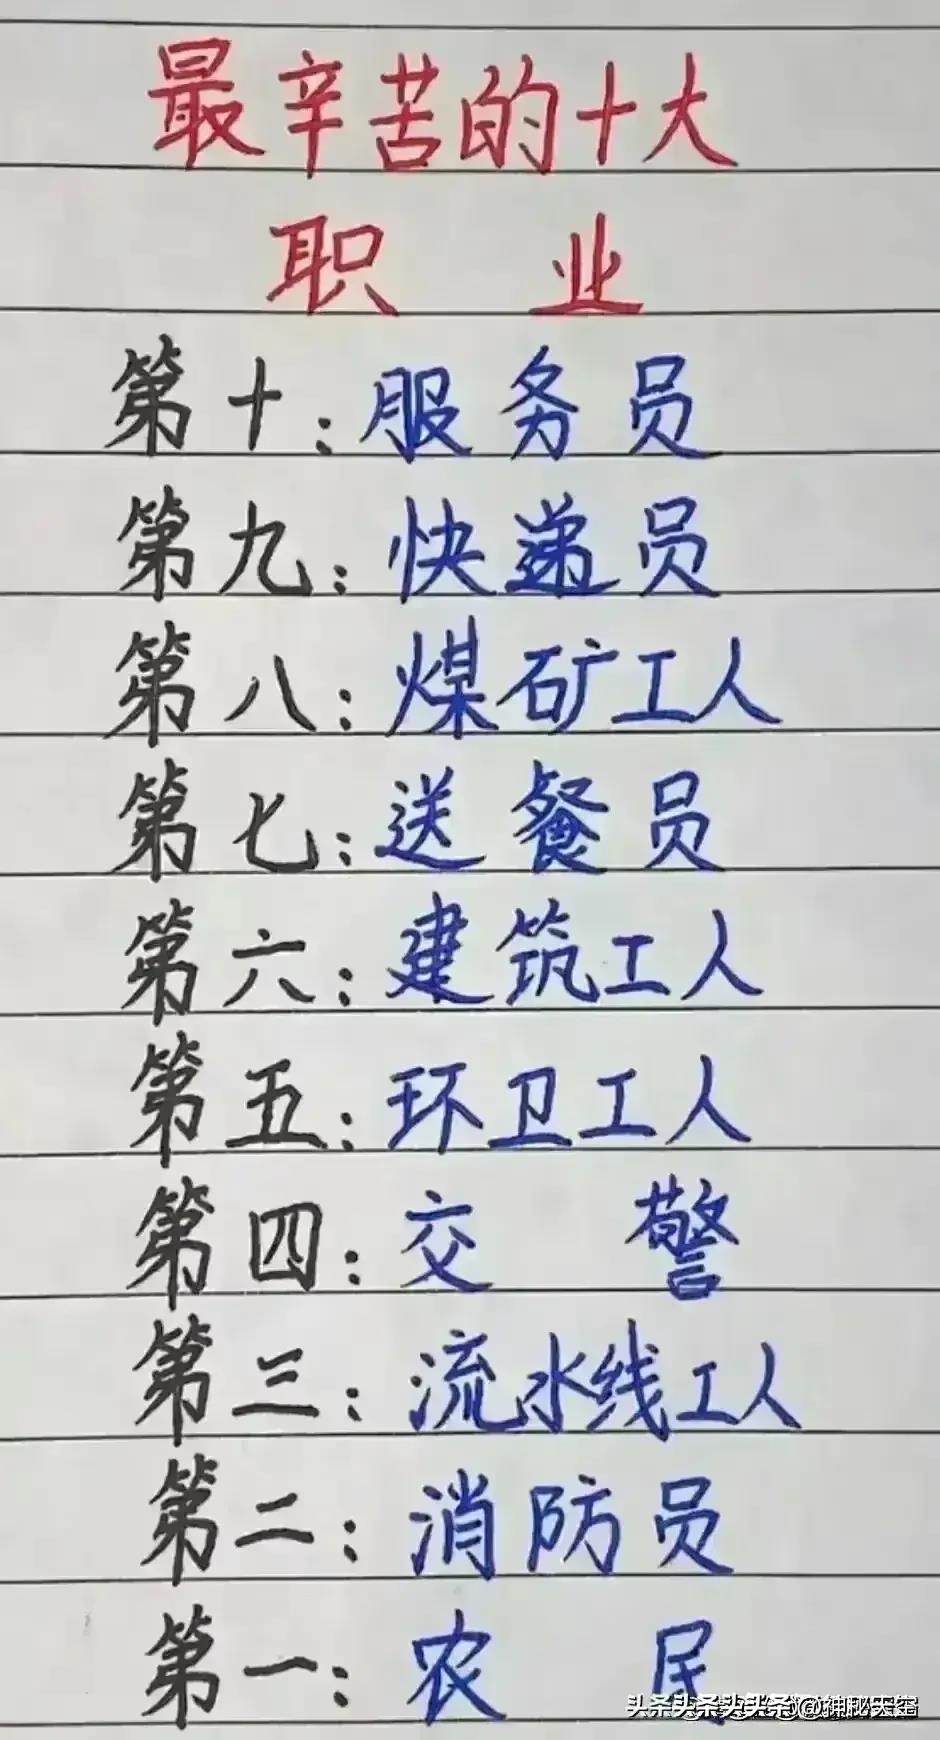 最辛苦的十大
职业
第十:服务员
第九:快递员
第八:煤矿工人
第七:送餐员
第六:建筑工人
第五:环卫工人
第四:交警
第三:流水线工人
第二:消防员
第一:农民
头条头条头条@神秘天空